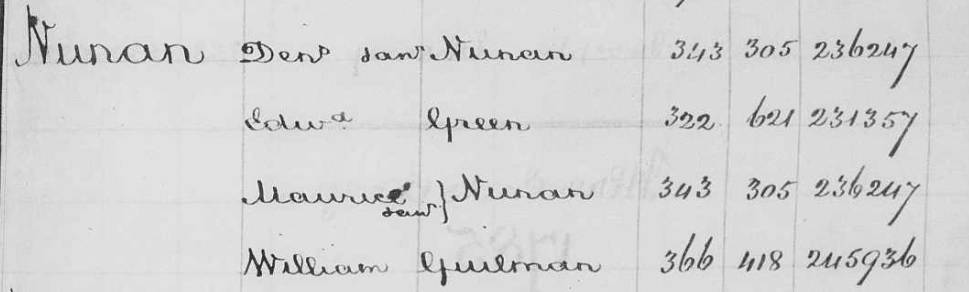 Nunan Denˢ san Nunan 343 305 236247
Edwᵈ Green 322 621 231357
Maurice } Nunan 343 305 236247
san
William Guilman 366 418 245936